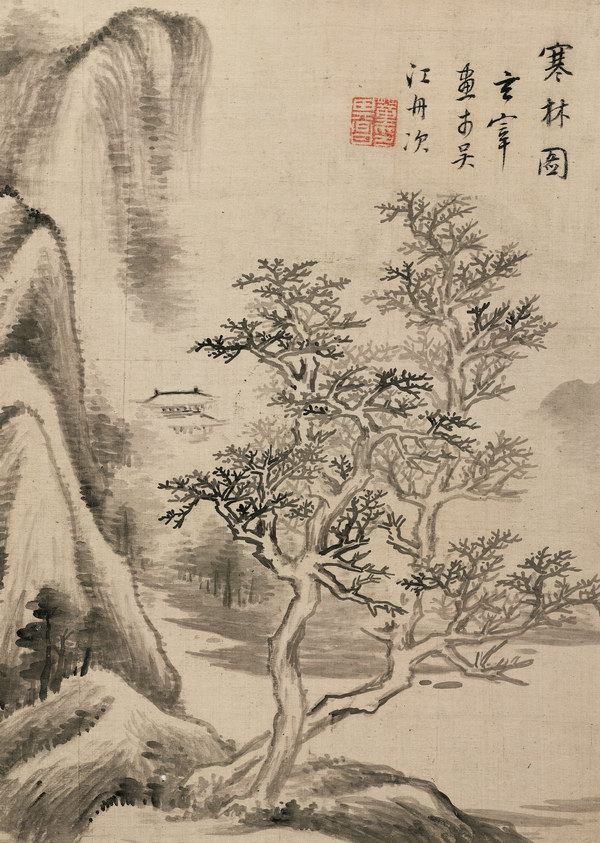 寒林圖
玄宰
畫於吳
江舟次